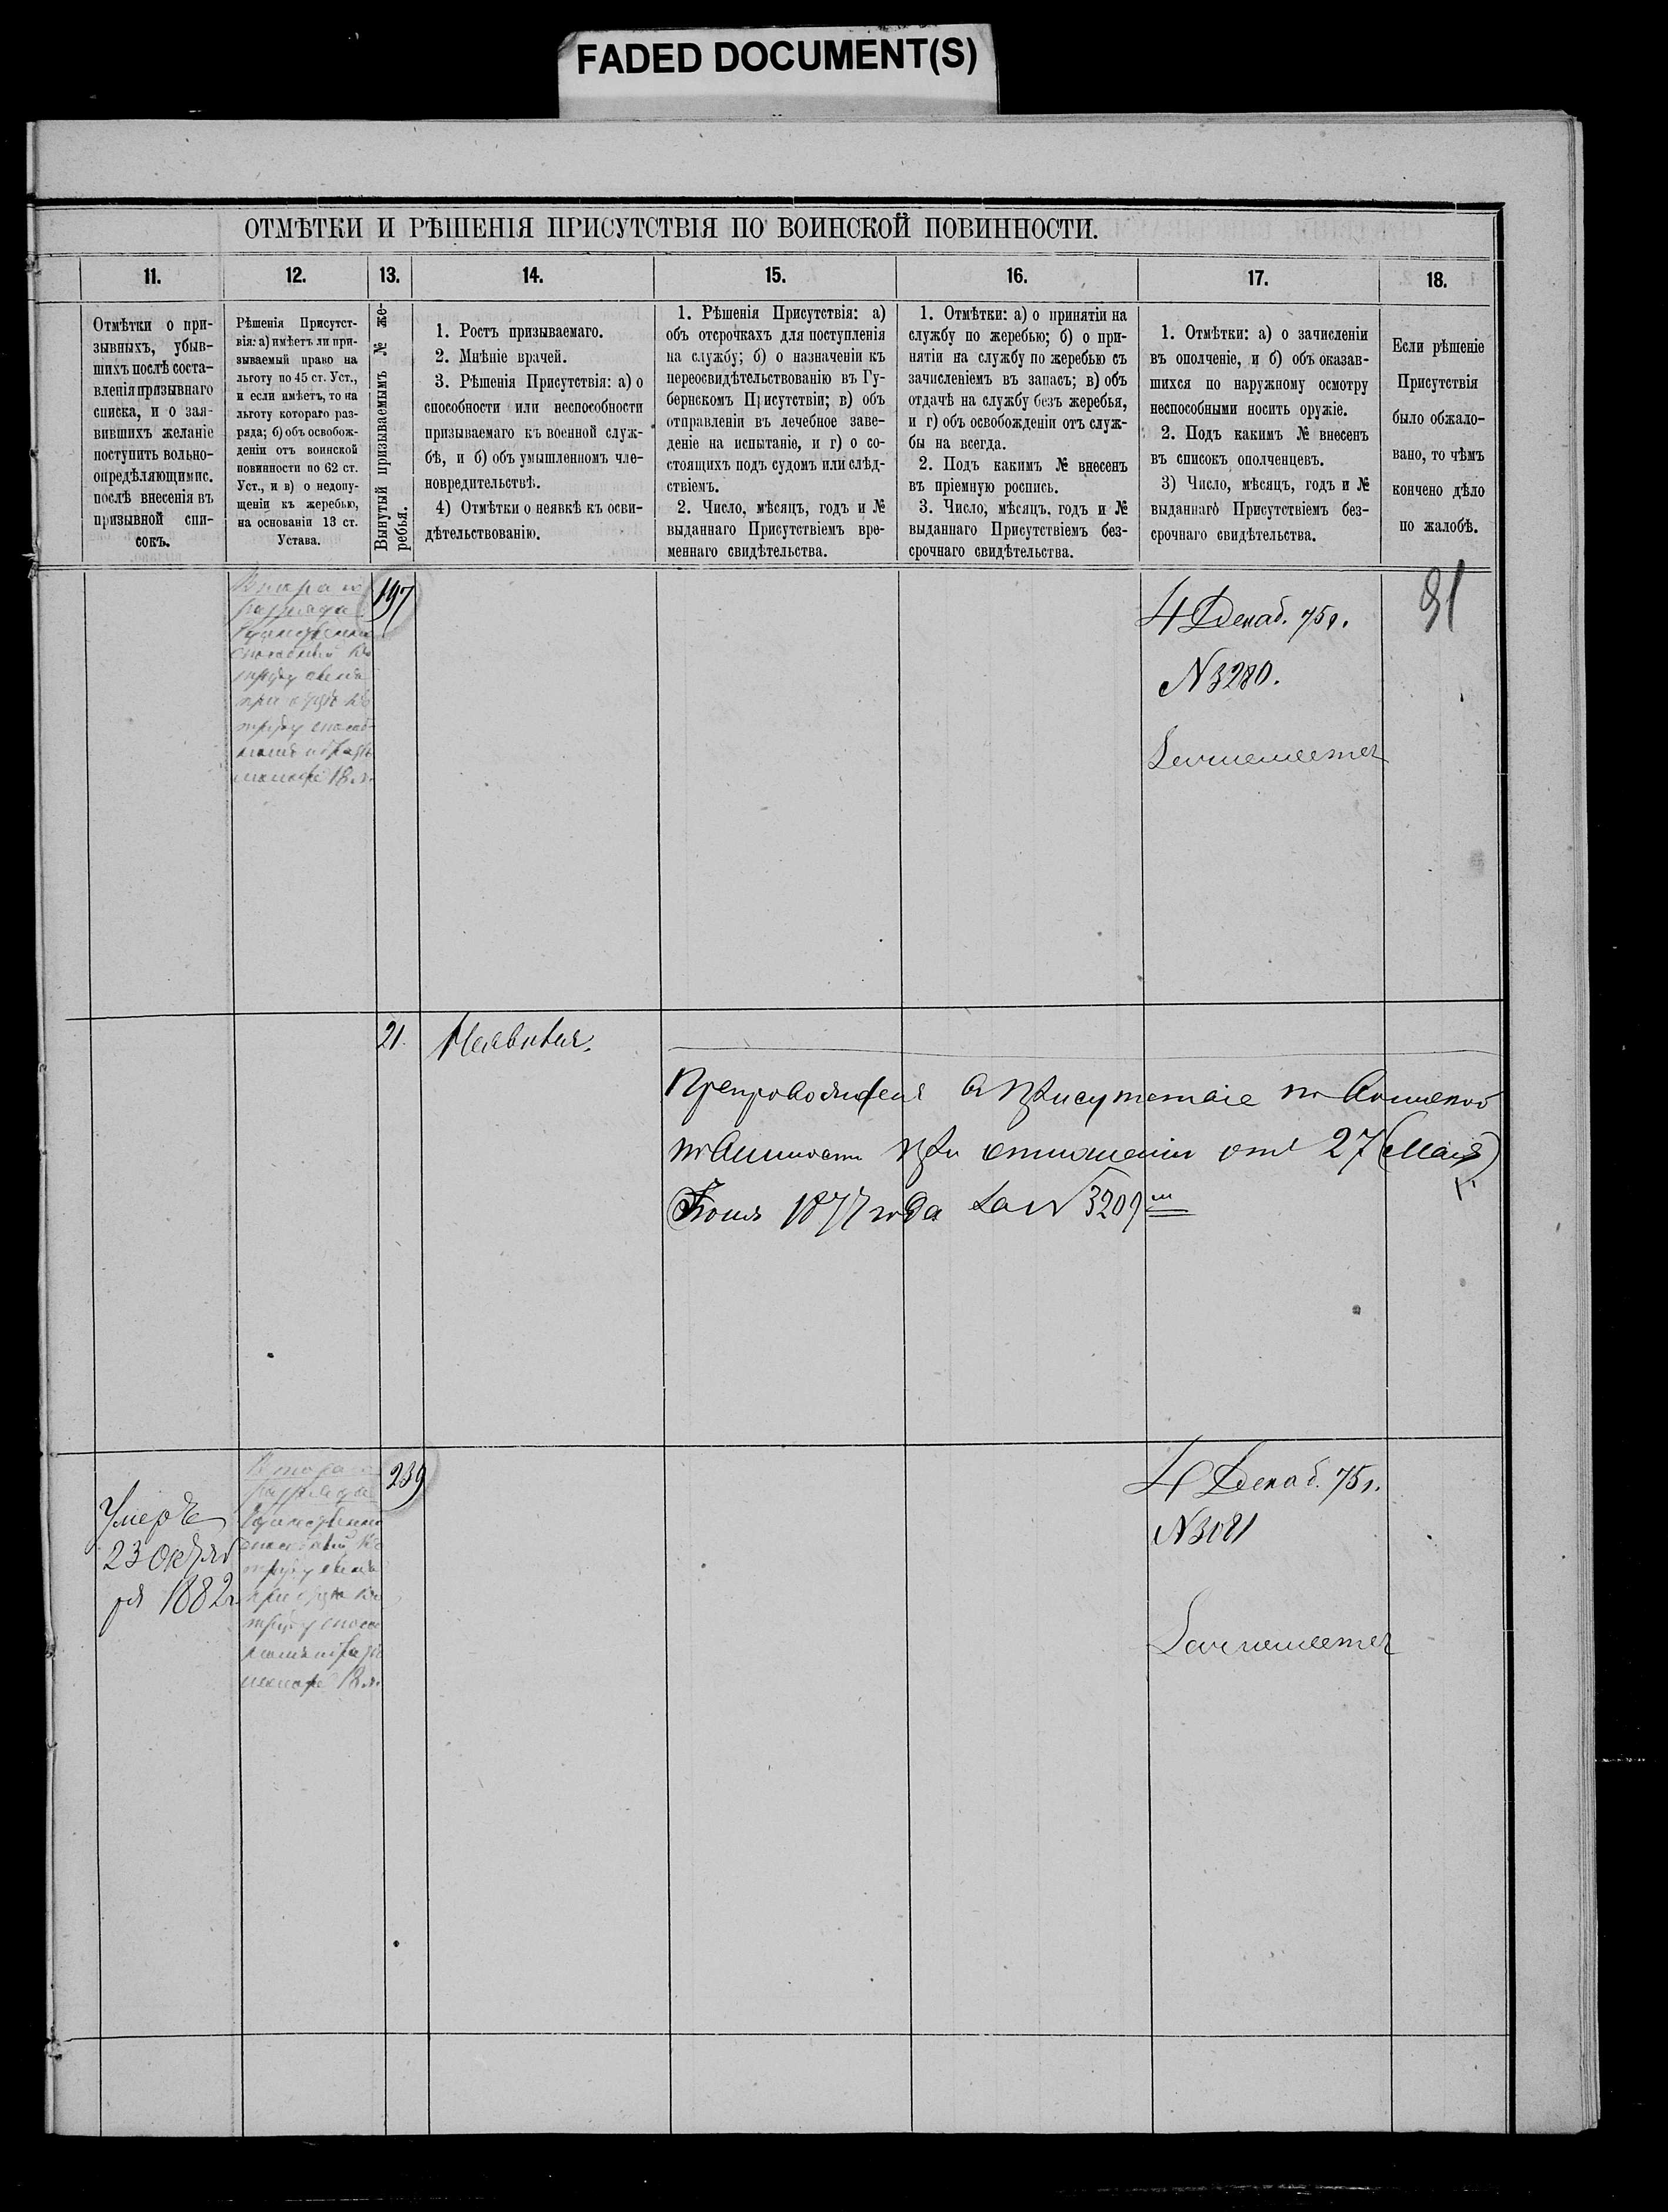 FADED DOCUMENT(S)
ОТМѢТКИ И РѢШЕНІЯ ПРИСУТСТВІЯ ПО ВОИНСКОЙ ПОВИННОСТИ.
11.
12.
13.
14.
15.
16.
17.
18.
Отмѣтки о при-
зывныхъ, убыв-
шихъ послѣ соста-
вленія призывнаго
списка, и о зая-
вившихъ желаніе
поступить вольно-
опредѣляющимис.
послѣ внесенія въ
призывной спи-
сокъ.
Рѣшенія Присутст-
вія: а) имѣетъ ли при-
зываемый право на
льготу по 45 ст. Уст.,
и если имѣетъ, то на
льготу котораго раз-
ряда; б) объ освобож-
деніи отъ воинской
повинности по 62 ст.
Уст., и в) о недопу-
щеніи къ жеребью,
на основаніи 13 ст.
Устава.
Вынутый призываемымъ № же-
ребья.
1. Ростъ призываемаго.
2. Мнѣніе врачей.
3. Рѣшенія Присутствія: а) о
способности или неспособности
призываемаго къ военной служ-
бѣ, и б) объ умышленномъ чле-
новредительствѣ.
4) Отмѣтки о неявкѣ къ осви-
дѣтельствованію.
1. Рѣшенія Присутствія: а)
объ отсрочкахъ для поступленія
на службу; б) о назначеніи къ
переосвидѣтельствованію въ Гу-
бернскомъ Присутствіи; в) объ
отправленіи въ лечебное заве-
деніе на испытаніе, и г) о со-
стоящихъ подъ судомъ или слѣд-
ствіемъ.
2. Число, мѣсяцъ, годъ и №
выданнаго Присутствіемъ вре-
меннаго свидѣтельства.
1. Отмѣтки: а) о принятіи на
службу по жеребью; б) о при-
нятіи на службу по жеребью съ
зачисленіемъ въ запасъ; в) объ
отдачѣ на службу безъ жеребья,
и г) объ освобожденіи отъ служ-
бы на всегда.
2. Подъ какимъ № внесенъ
въ пріемную роспись.
3. Число, мѣсяцъ, годъ и №
выданнаго Присутствіемъ без-
срочнаго свидѣтельства.
1. Отмѣтки: а) о зачисленіи
въ ополченіе, и б) объ оказав-
шихся по наружному осмотру
неспособными носить оружіе.
2. Подъ какимъ № внесенъ
въ списокъ ополченцевъ.
3) Число, мѣсяцъ, годъ и №
выданнаго Присутствіемъ без-
срочнаго свидѣтельства.
Если рѣшеніе
Присутствія
было обжало-
вано, то чѣмъ
кончено дѣло
по жалобѣ.
разряда
способный къ
труду
при отцѣ къ
труду способ-
18 л.
197
4 Декаб. 75 г.
N 3280.
91
21.
Неявился.
Препроводился въ Присутствіе по Воинской
повинности при отношеніи отъ 27 (Мая)
Іюня 1877 года за N 3209
Умеръ
23 Октяб
ря 1882 г.
разряда
способный къ
труду
при отцѣ къ
труду способ
18 л.
239
4 Декаб. 75 г.
N 3081